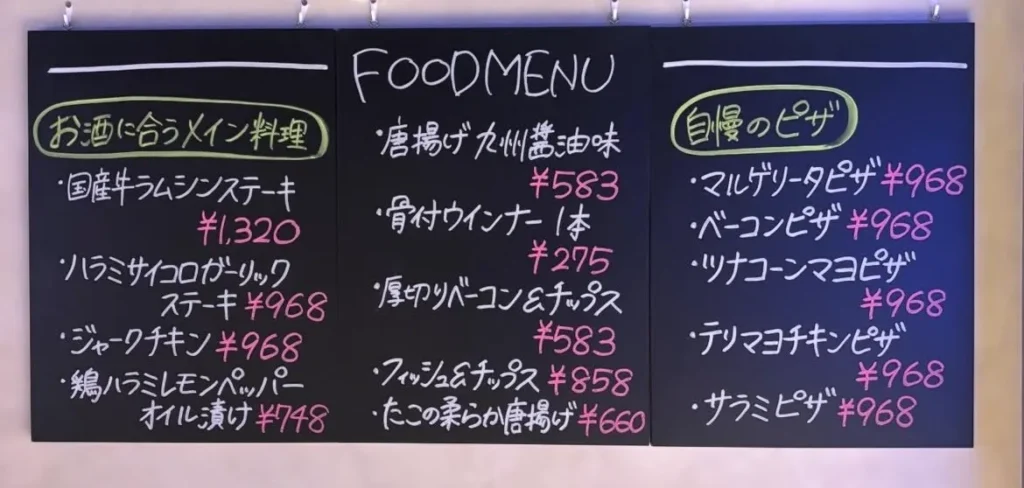 FOODMENU
お酒に合うメイン料理
・国産牛ラムシンステーキ
¥1,320
・ハラミサイコロガーリック
ステーキ ¥968
・ジャークチキン ¥968
・鶏ハラミレモンペッパー
オイル漬け ¥748
・唐揚げ 九州醤油味
¥583
・骨付ウインナー 1本
¥275
・厚切りベーコン&チップス
¥583
・フィッシュ&チップス ¥858
・たこの柔らか唐揚げ ¥660
自慢のピザ
・マルゲリータピザ ¥968
・ベーコンピザ ¥968
・ツナコーンマヨピザ
¥968
・テリマヨチキンピザ
¥968
・サラミピザ ¥968